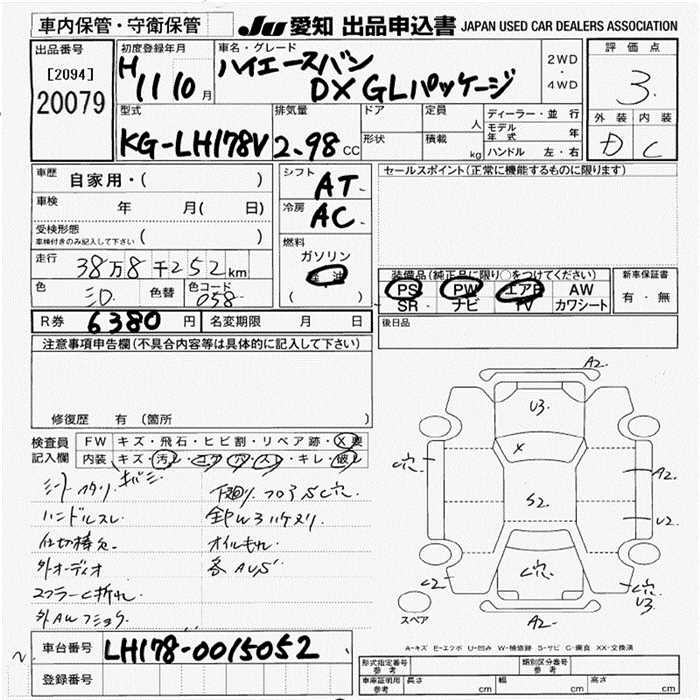 車内保管・守衛保管 JU 愛知 出品申込書 JAPAN USED CAR DEALERS ASSOCIATION
出品番号 初度登録年月 車名・グレード 評価点
[2094] H11 10月 ハイエースバン 2WD・4WD 3
20079 DX GLパッケージ
型式 排気量 ドア 定員 人 ディーラー・並行 外装 内装
KG-LH178V 2.98CC 形状 積載 kg モデル年式 年 D C
ハンドル 左・右
車歴 自家用・( ) シフト AT セールスポイント(正常に機能するものに限ります)
車検 年 月( 日) 冷房 AC
受検形態 ( )
車検付きのみ記入して下さい
燃料 ガソリン 軽油 ( )
走行 38万8千252km
装備品(純正品に限り○をつけてください) 新車保証書
PS PW エアB AW 有・無
SR ナビ TV カワシート
色 色替 色コード 058
R券 6380円 名変期限 月 日 後日品
注意事項申告欄(不具合内容等は具体的に記入して下さい)
修復歴 有 (箇所 )
検査員 FW キズ・飛石・ヒビ割・リペア跡・X要
記入欄 内装 キズ・汚レ・コゲ・穴・スレ・キレ・破レ
ハンドルスレ
外オーディオ
オイルもれ
A2
U3
X
C穴
A2
S2
U2
C2
C穴
C穴
U3
A2
スペア
A-キズ E-エクボ U-凹み W-補修跡 S-サビ C-腐食 XX-交換済
車台番号 LH178-0015052
登録番号
形式指定番号 参考 類別区分番号 参考
車庫証明用 参考 長さ cm 幅 cm 高さ cm